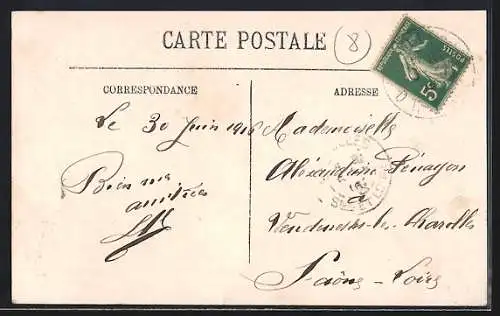 CARTE POSTALE
8
CORRESPONDANCE
ADRESSE
POSTES
5c
Le 30 Juin 1916
Mademoiselle
Alexandrine
Bien
amitiés
à
Vendenesse-les-Charolles
Saône-Loire